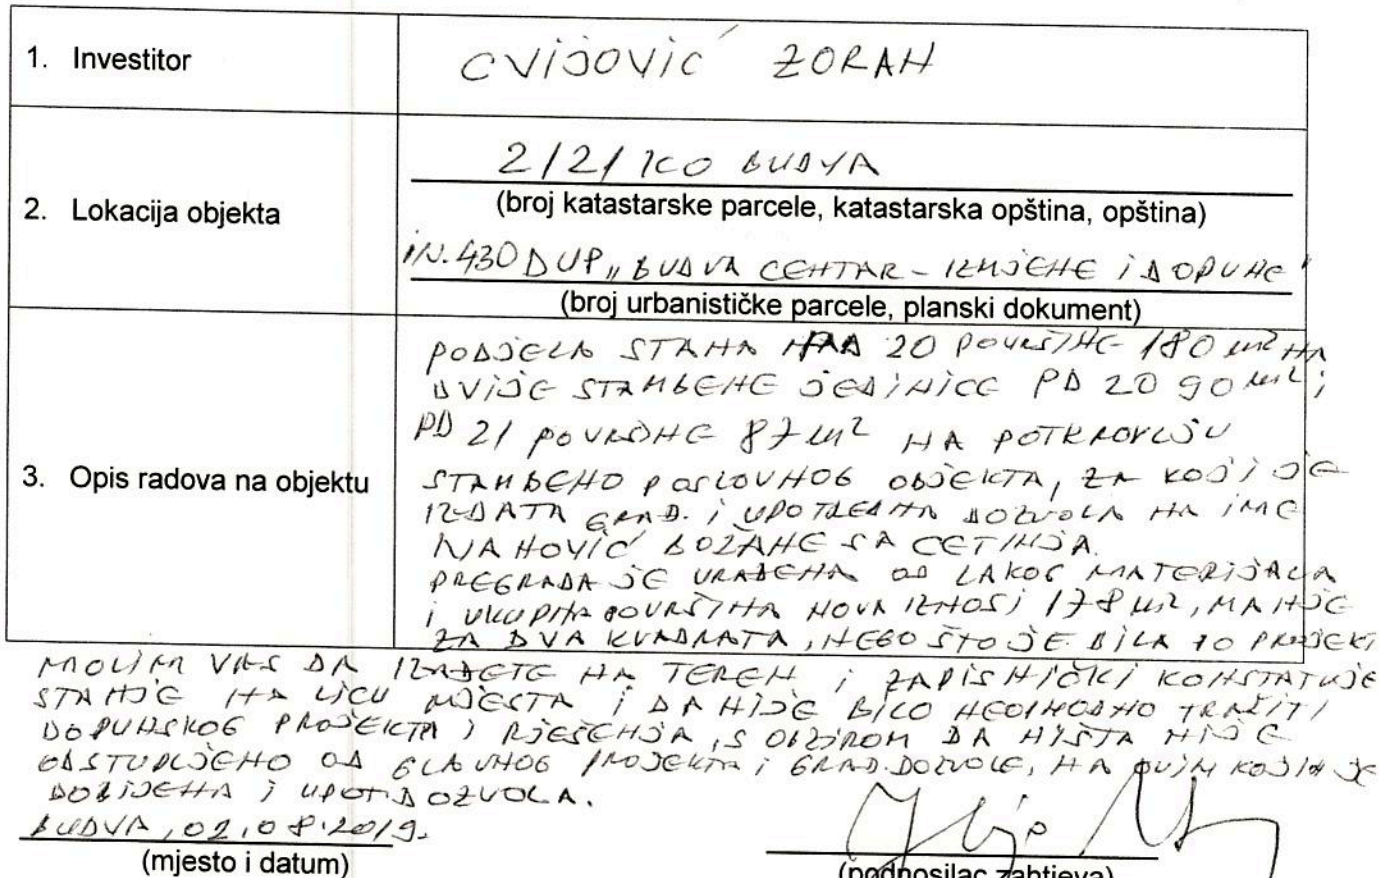 1. Investitor
CVIJOVIĆ ZORAN
2. Lokacija objekta
2/2/ KO BUDVA
(broj katastarske parcele, katastarska opština, opština)
430 DUP „BUDVA CENTAR - IZMJENE i DOPUNE"
(broj urbanističke parcele, planski dokument)
3. Opis radova na objektu
PODJELA STANA 20 POVRŠINE 180 m² NA
DVIJE STAMBENE JEDINICE PD 20 90 m² i
PD 21 POVRŠINE 87 m² NA POTKROVLJU
STAMBENO POSLOVNOG OBJEKTA, ZA KOJI JE
IZDATA GRAĐ. i UPOTREBNA DOZVOLA NA IME
BOŽANE SA CETINJA.
PREGRADA JE URAĐENA OD LAKOG MATERIJALA
i UKUPNA POVRŠINA NOVA IZNOSI 178 m², MANJE
ZA DVA KVADRATA, NEGO ŠTO JE BILA PO PROJEKT
MOLIM VAS DA IZAĐETE NA TEREN i ZAPISNIČKI KONSTATUJE
STANJE NA LICU MJESTA i DA NIJE BILO NEOPHODNO TRAŽITI
DOPUNSKOG PROJEKTA i RJEŠENJA, S OBZIROM DA NIŠTA NIJE
ODSTUPLJENO OD GLAVNOG PROJEKTA i GRAĐ. DOZVOLE, NA KOJIM JE
DOBIJENA i UPOT. DOZVOLA.
BUDVA, 02.08.2019.
(mjesto i datum)
(podnosilac zahtjeva)